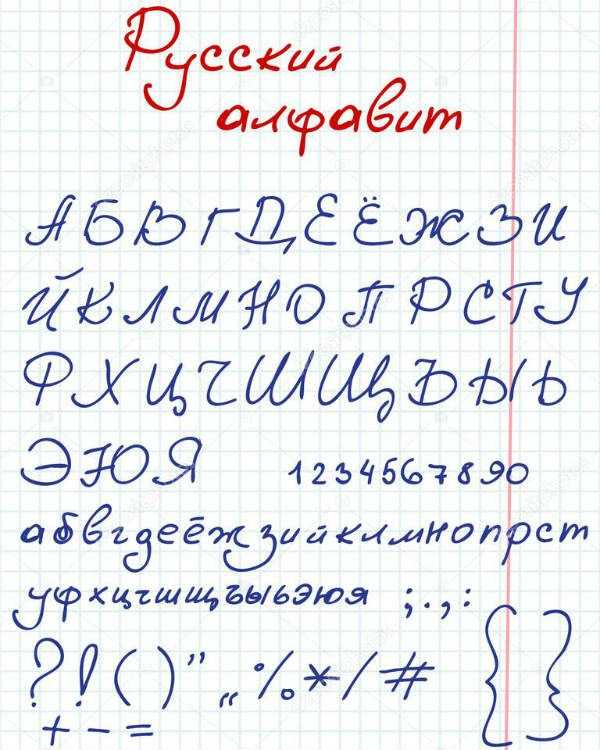 Русский
алфавит
А Б В Г Д Е Ё Ж З И
Й К Л М Н О П Р С Т У
Ф Х Ц Ч Ш Щ Ъ Ы Ь
Э Ю Я 1 2 3 4 5 6 7 8 9 0
а б в г д е ё ж з и й к л м н о п р с т
у ф х ц ч ш щ ъ ы ь э ю я ; . , :
? ! ( ) ” „ % * / # { }
+ - =